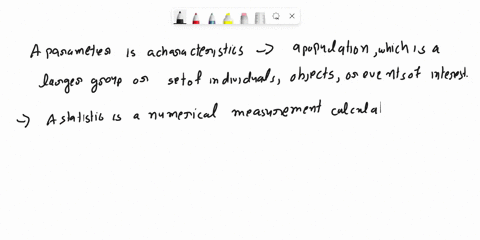 A parameter is a characteristics → a population, which is a
larger group or set of individuals, objects, or events of interest.
→ A statistic is a numerical measurement calcula